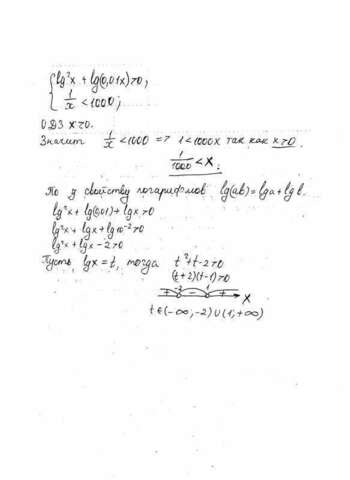 lg²x + lg(0,01x)>0,
1/x < 1000;
ОДЗ x>0.
Значит 1/x < 1000 => 1 < 1000x так как x>0
1/1000 < x.
По свойству логарифмов lg(ab) = lga + lg b.
lg²x + lg(0,01) + lgx >0
lg²x + lgx + lg10⁻² >0
lg²x + lgx - 2 >0
Пусть lgx = t, тогда t²+t-2>0
(t+2)(t-1)>0
+ -2 - 1 + x
t ∈ (-∞; -2) ∪ (1; +∞)